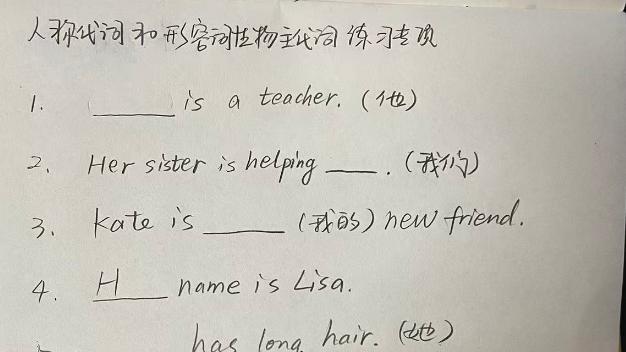 人称代词和形容词性物主代词练习专项
1. ______ is a teacher. (他)
2. Her sister is helping ____. (我们)
3. Kate is ______ (我的) new friend.
4. H____ name is Lisa.
______ has long hair. (她)